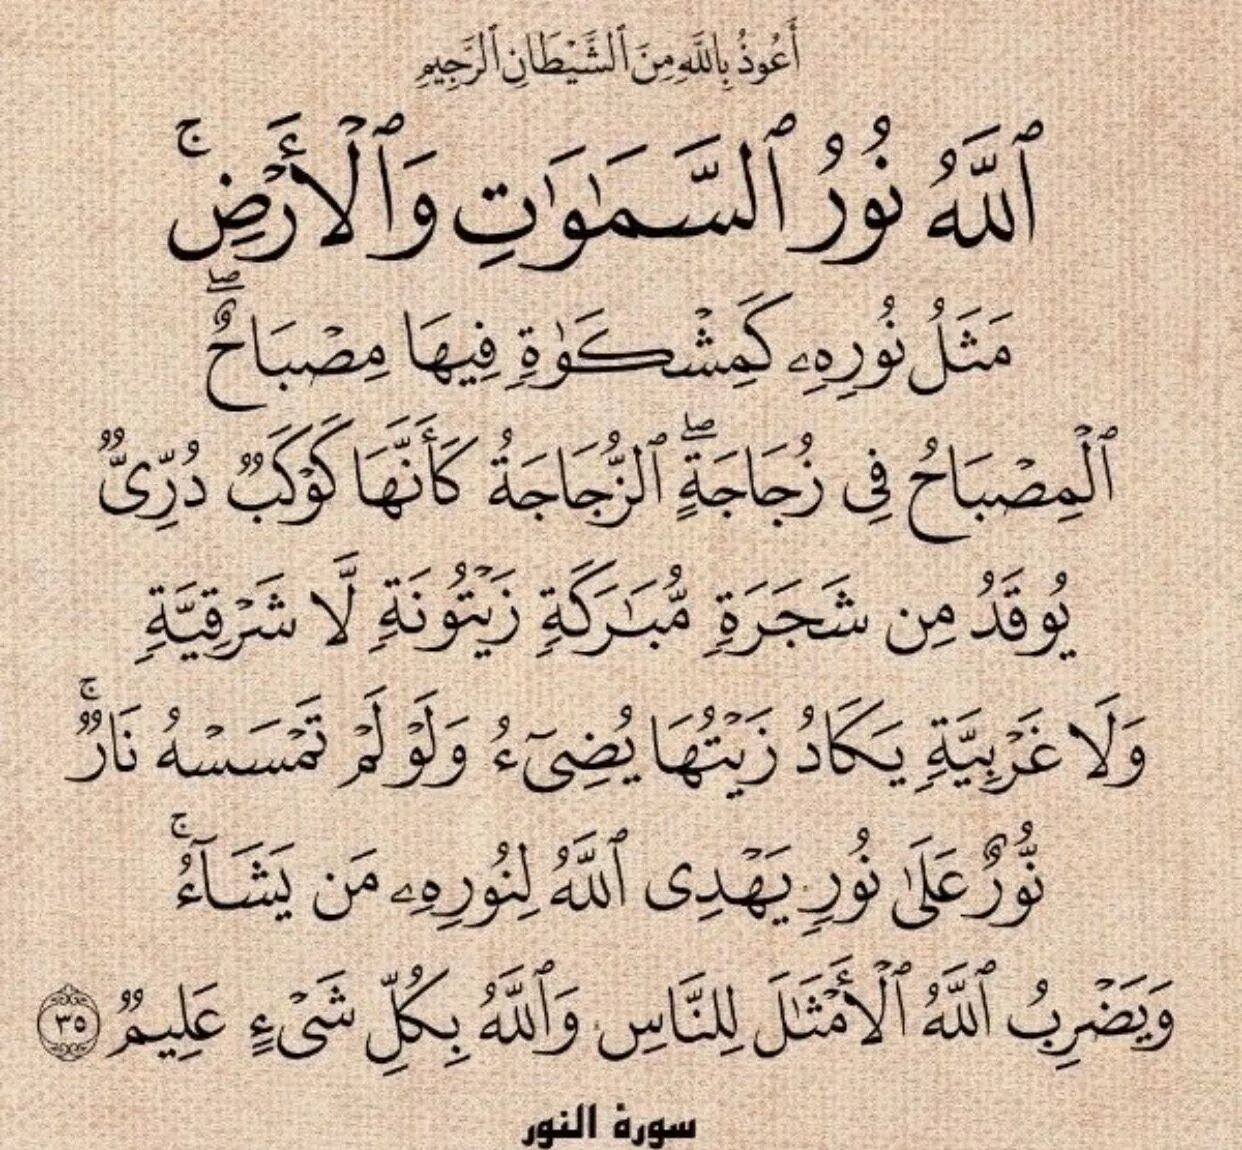 أَعُوذُ بِاللَّهِ مِنَ ٱلشَّيْطَانِ ٱلرَّجِيمِ
ٱللَّهُ نُورُ ٱلسَّمَٰوَٰتِ وَٱلْأَرْضِ ۚ
مَثَلُ نُورِهِۦ كَمِشْكَوٰةٍ فِيهَا مِصْبَاحٌ ۖ
ٱلْمِصْبَاحُ فِى زُجَاجَةٍ ۖ ٱلزُّجَاجَةُ كَأَنَّهَا كَوْكَبٌ دُرِّىٌّ
يُوقَدُ مِن شَجَرَةٍ مُّبَٰرَكَةٍ زَيْتُونَةٍ لَّا شَرْقِيَّةٍ
وَلَا غَرْبِيَّةٍ يَكَادُ زَيْتُهَا يُضِىٓءُ وَلَوْ لَمْ تَمْسَسْهُ نَارٌ ۚ
نُّورٌ عَلَىٰ نُورٍ يَهْدِى ٱللَّهُ لِنُورِهِۦ مَن يَشَآءُ ۚ
وَيَضْرِبُ ٱللَّهُ ٱلْأَمْثَٰلَ لِلنَّاسِ وَٱللَّهُ بِكُلِّ شَىْءٍ عَلِيمٌ ٣٥
سورة النور